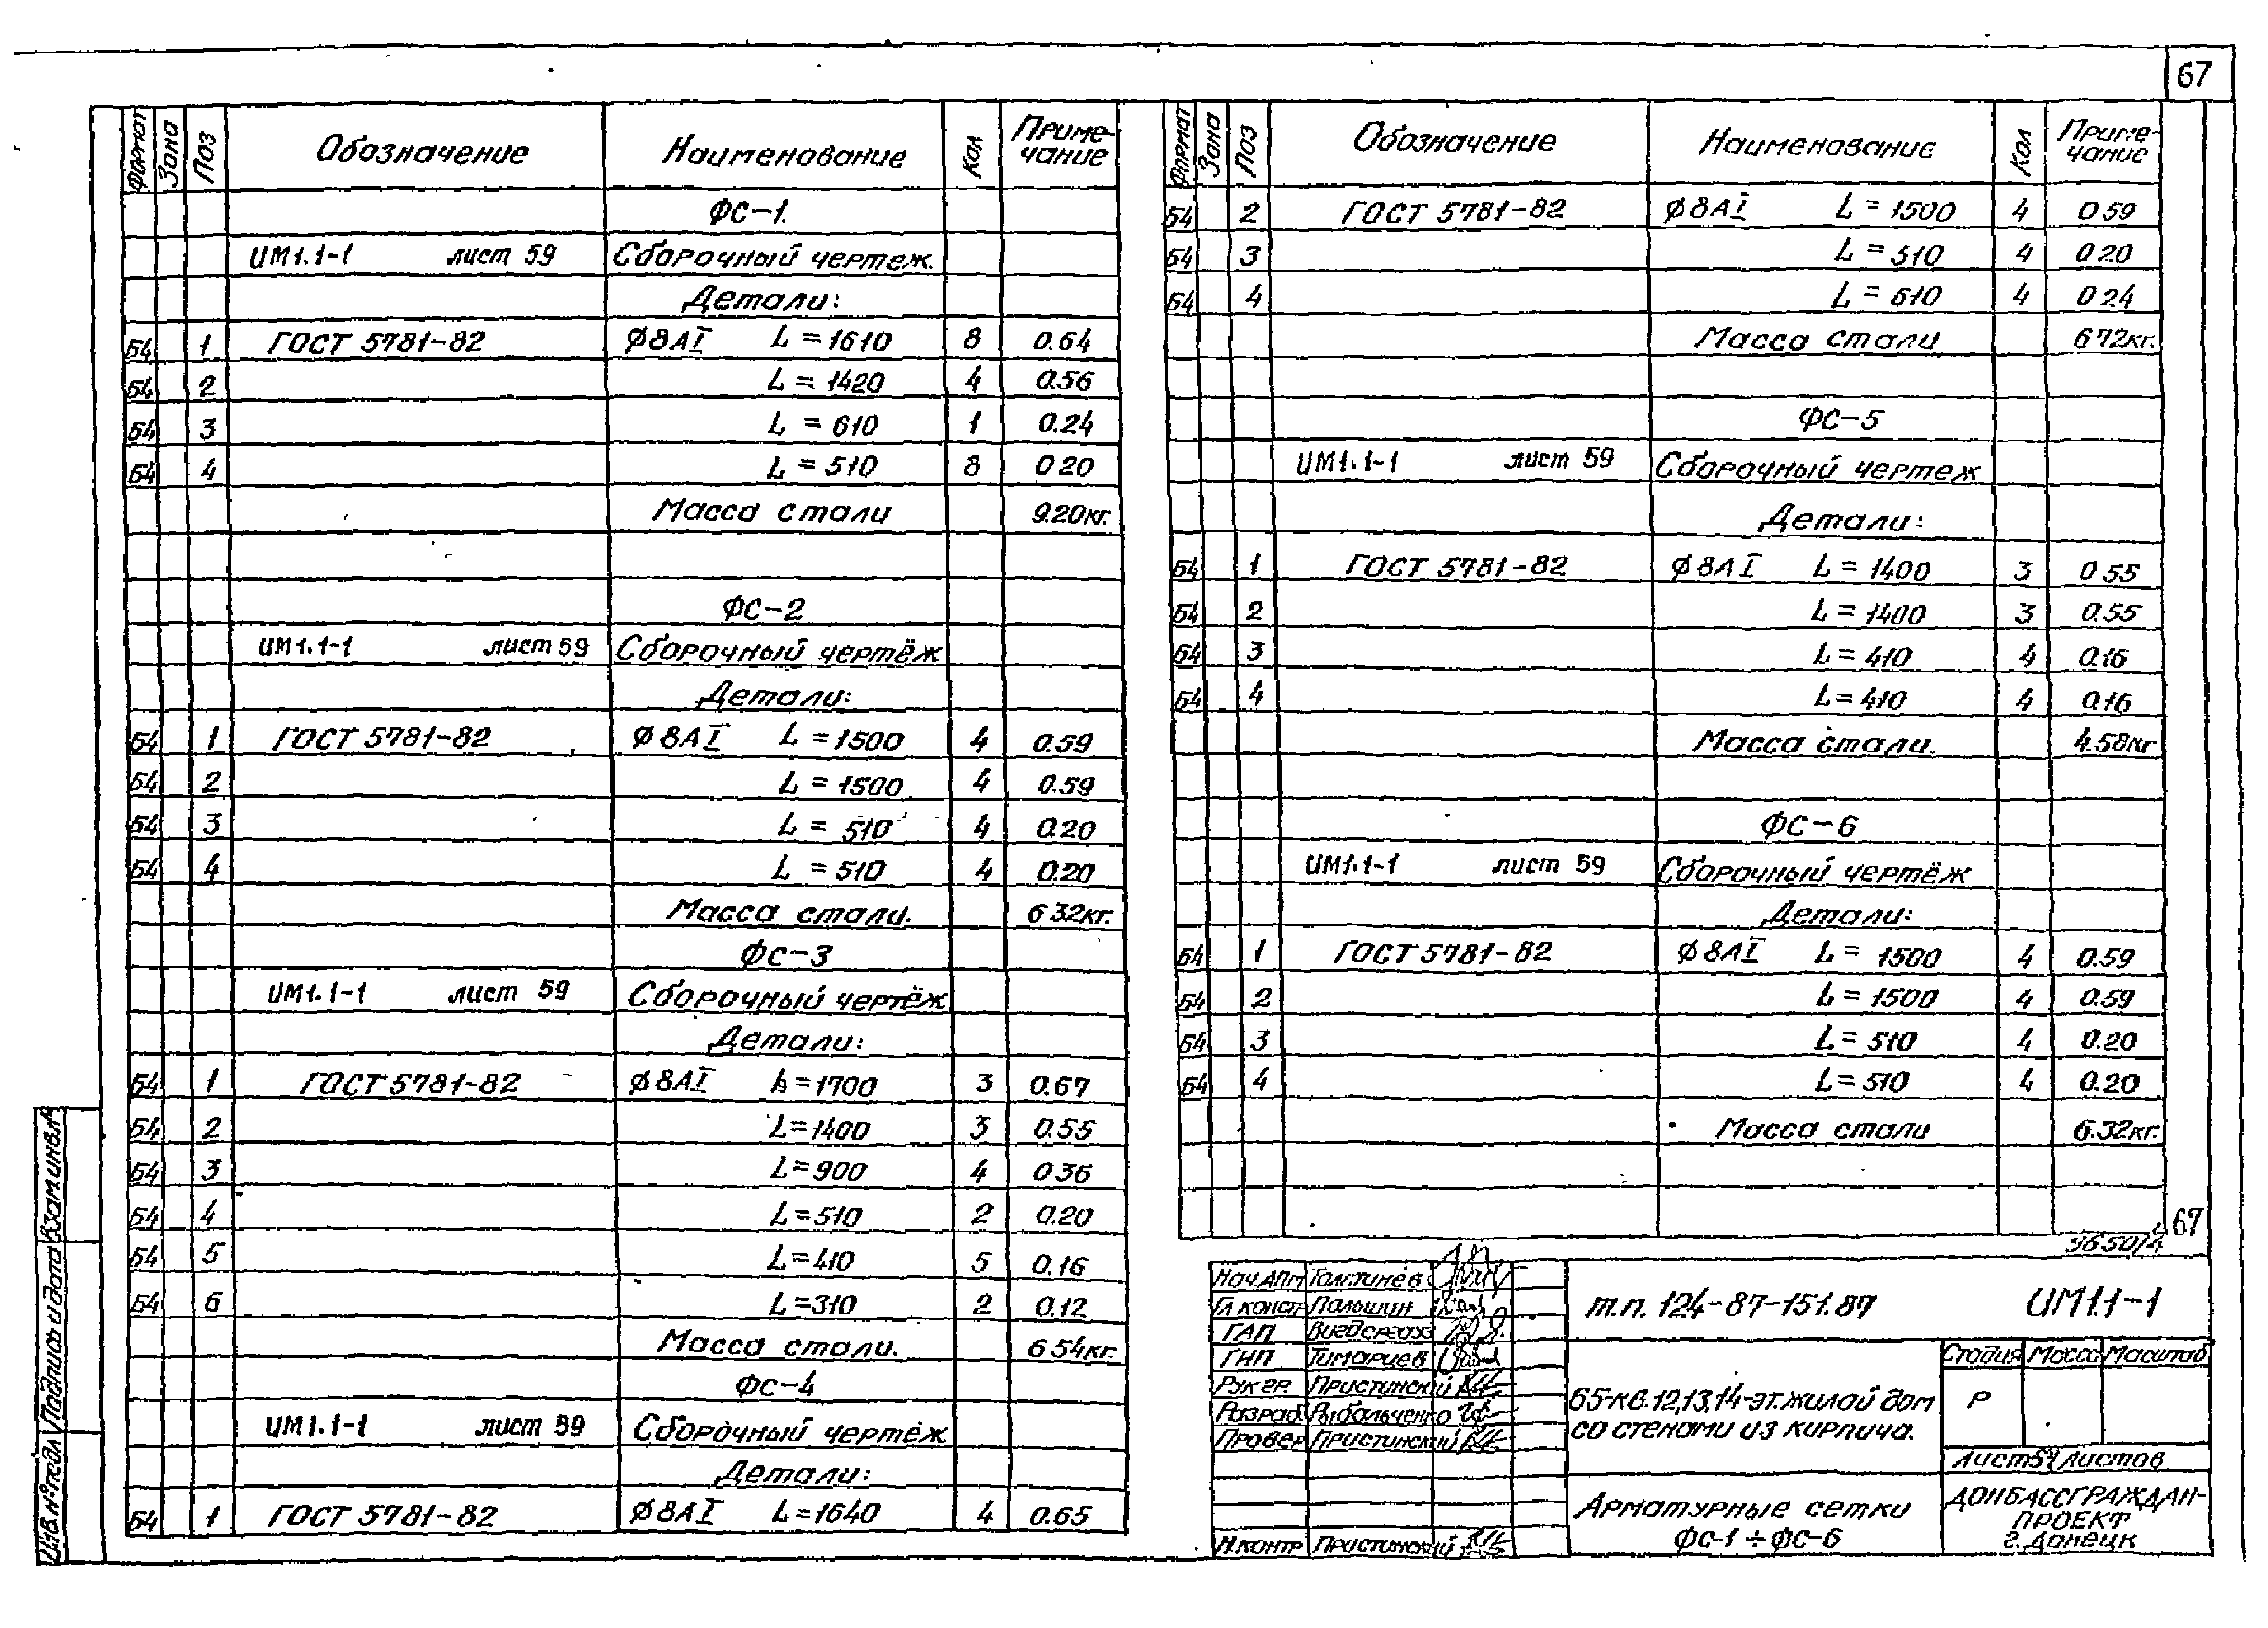 67
Формат Зона Поз Обозначение Наименование Кол Приме-чание
ФС-1.
ИМ1.1-1 лист 59 Сборочный чертеж.
Детали:
Б4 1 ГОСТ 5781-82 Ø8АI L=1610 8 0.64
Б4 2 L=1420 4 0.56
Б4 3 L=610 1 0.24
Б4 4 L=510 8 0 20
Масса стали 9.20кг.
ФС-2
ИМ1.1-1 лист 59 Сборочный чертёж
Детали:
Б4 1 ГОСТ 5781-82 Ø8АI L=1500 4 0.59
Б4 2 L=1500 4 0.59
Б4 3 L=510 4 0.20
Б4 4 L=510 4 0.20
Масса стали. 6 32кг.
ФС-3
ИМ1.1-1 лист 59 Сборочный чертёж
Детали:
Б4 1 ГОСТ 5781-82 Ø8АI L=1700 3 0.67
Б4 2 L=1400 3 0.55
Б4 3 L=900 4 0 36
Б4 4 L=510 2 0.20
Б4 5 L=410 5 0.16
Б4 6 L=310 2 0.12
Масса стали. 6 54кг.
ФС-4
ИМ1.1-1 лист 59 Сборочный чертёж
Детали:
Б4 1 ГОСТ 5781-82 Ø8АI L=1640 4 0.65
Формат Зона Поз Обозначение Наименование Кол Приме-чание
Б4 2 ГОСТ 5781-82 Ø8АI L=1500 4 0 59
Б4 3 L=510 4 0 20
Б4 4 L=610 4 0 24
Масса стали 6 72кг.
ФС-5
ИМ1.1-1 лист 59 Сборочный чертеж
Детали:
Б4 1 ГОСТ 5781-82 Ø8АI L=1400 3 0 55
Б4 2 L=1400 3 0.55
Б4 3 L=410 4 0.16
Б4 4 L=410 4 0.16
Масса стали. 4.58кг
ФС-6
ИМ1.1-1 лист 59 Сборочный чертёж
Детали:
Б4 1 ГОСТ 5781-82 Ø8АI L=1500 4 0.59
Б4 2 L=1500 4 0.59
Б4 3 L=510 4 0.20
Б4 4 L=510 4 0.20
Масса стали 6.32кг.
67
9650/4
Нач.АПМ Толстинёв
Гл констр Пальшин
ГАП
ГИП Тимариев
Рук гр. Пристинский
Разраб. Рыбальченко
Провер Пристинский
Н.контр Пристинский
т.п. 124-87-151.87 ИМ1.1-1
65-кв.12,13,14-эт.жилой дом
со стенами из кирпича.
Стадия Масса Масштаб
Р
Лист 54 Листов
Арматурные сетки
ФС-1÷ФС-6
ДОНБАССГРАЖДАН-
ПРОЕКТ
г.Донецк
Инв.№подл Подпись и дата Взам.инв.№